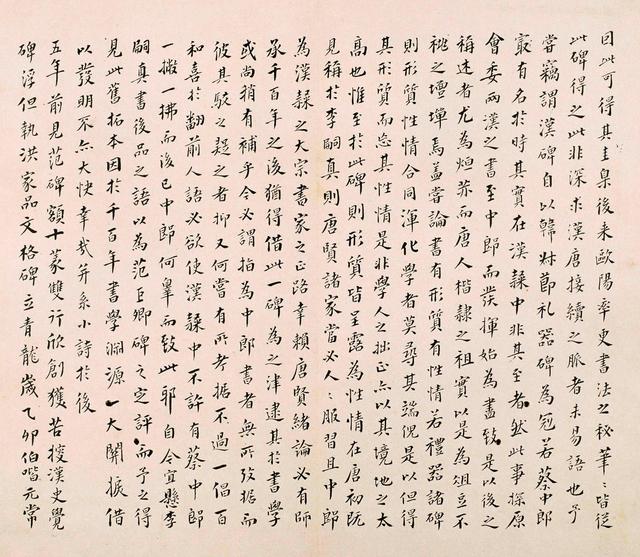 因此可得其圭臬後來歐陽率更書法之秘筆〻皆從
此碑得之此非深求漢唐接續之脈者未易語也予
嘗竊謂漢碑自以韓敕節礼器碑為冠若蔡中郎
最有名於時其實在漢隸中非其至者然此事探原
會委兩漢之書至中郎而發揮始為盡致是以後之
稱述者尤為烜赫而唐人楷隸之祖實以是為俎豆不
祧之壇墠焉蓋嘗論書有形質有性情若禮器諸碑
則形質性情合同渾化學者莫尋其端倪是以但得
其形質而忘其性情是非學人之拙正以其境地之太
高也惟至於此碑則形質皆呈露為性情在唐初既
見稱於李嗣真則唐賢諸家當必人〻服習且中郎
為漢隸之大宗書家之正路幸賴唐賢緒論必有師
承千百年之後猶得借此一碑為之津逮其於書學
或尚稍有補乎今必謂指為中郎書者無所攷据而
彼其駁之疑之者抑又何嘗有所考据不過一倡百
和喜於翻前人語必欲使漢隸中不許有蔡中郎
一撇一拂而後已中郎何辜而致此耶自今宜懸李
嗣真書後品之語以為范巨卿碑之定評而予之得
見此舊拓本因於千百年書學淵源一大開振借
以發明不亦大快幸哉并系小詩於後
五年前見范碑額十篆雙行欣創獲苦搜漢史覺
碑淳但執洪家品文格碑立青龍歲乙卯伯喈元常